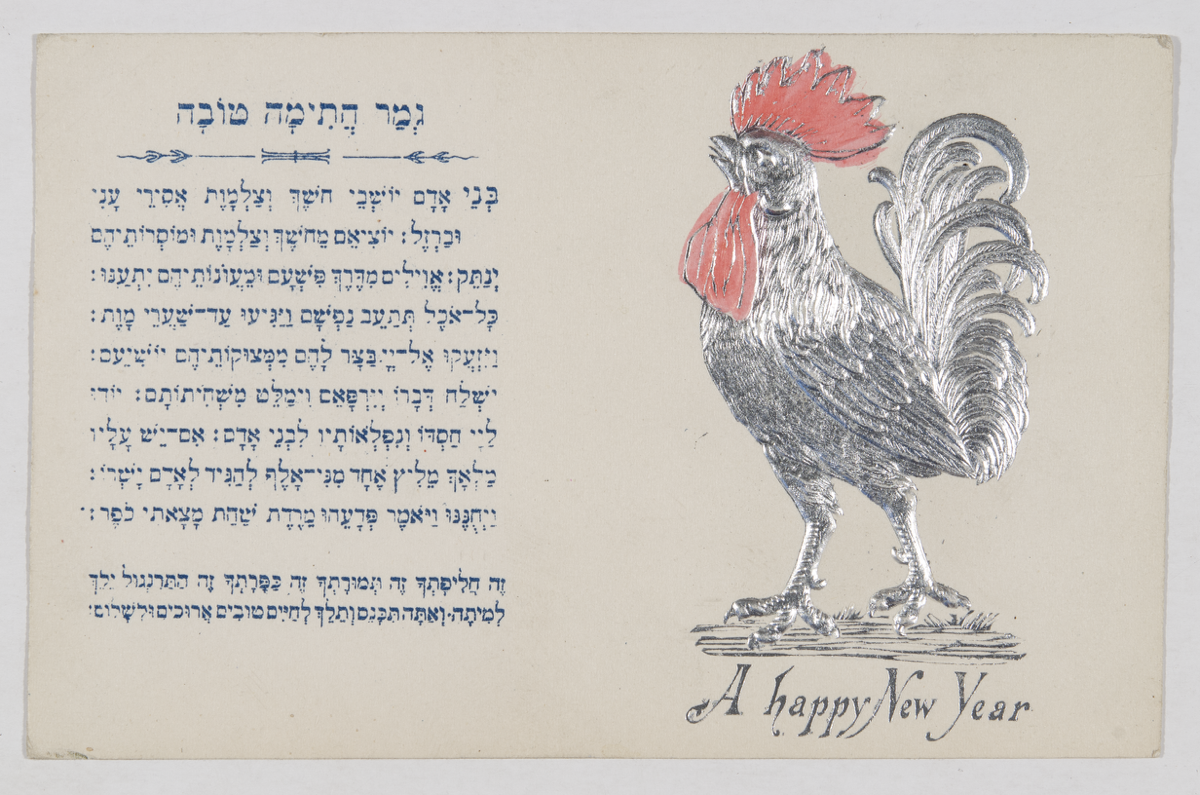 גְּמַר חֲתִימָה טוֹבָה
בְּנֵי אָדָם יוֹשְׁבֵי חֹשֶׁךְ וְצַלְמָוֶת אֲסִירֵי עֳנִי
וּבַרְזֶל: יוֹצִיאֵם מֵחֹשֶׁךְ וְצַלְמָוֶת וּמוֹסְרוֹתֵיהֶם
יְנַתֵּק: אֱוִילִים מִדֶּרֶךְ פִּשְׁעָם וּמֵעֲוֹנוֹתֵיהֶם יִתְעַנּוּ:
כָּל־אֹכֶל תְּתַעֵב נַפְשָׁם וַיַּגִּיעוּ עַד־שַׁעֲרֵי מָוֶת:
וַיִּזְעֲקוּ אֶל־יְיָ בַּצַּר לָהֶם מִמְּצוּקוֹתֵיהֶם יוֹשִׁיעֵם:
יִשְׁלַח דְּבָרוֹ וְיִרְפָּאֵם וִימַלֵּט מִשְּׁחִיתוֹתָם: יוֹדוּ
לַיְיָ חַסְדּוֹ וְנִפְלְאוֹתָיו לִבְנֵי אָדָם: אִם־יֵשׁ עָלָיו
מַלְאָךְ מֵלִיץ אֶחָד מִנִּי־אָלֶף לְהַגִּיד לְאָדָם יָשְׁרוֹ:
וַיְחֻנֶּנּוּ וַיֹּאמֶר פְּדָעֵהוּ מֵרֶדֶת שַׁחַת מָצָאתִי כֹפֶר:
זֶה חֲלִיפָתְךָ זֶה תְּמוּרָתְךָ זֶה כַּפָּרָתְךָ זֶה הַתַּרְנְגוֹל יֵלֵךְ
לְמִיתָה, וְאַתָּה תִּכָּנֵס וְתֵלֵךְ לְחַיִּים טוֹבִים אֲרוּכִים וּלְשָׁלוֹם:
A happy New Year